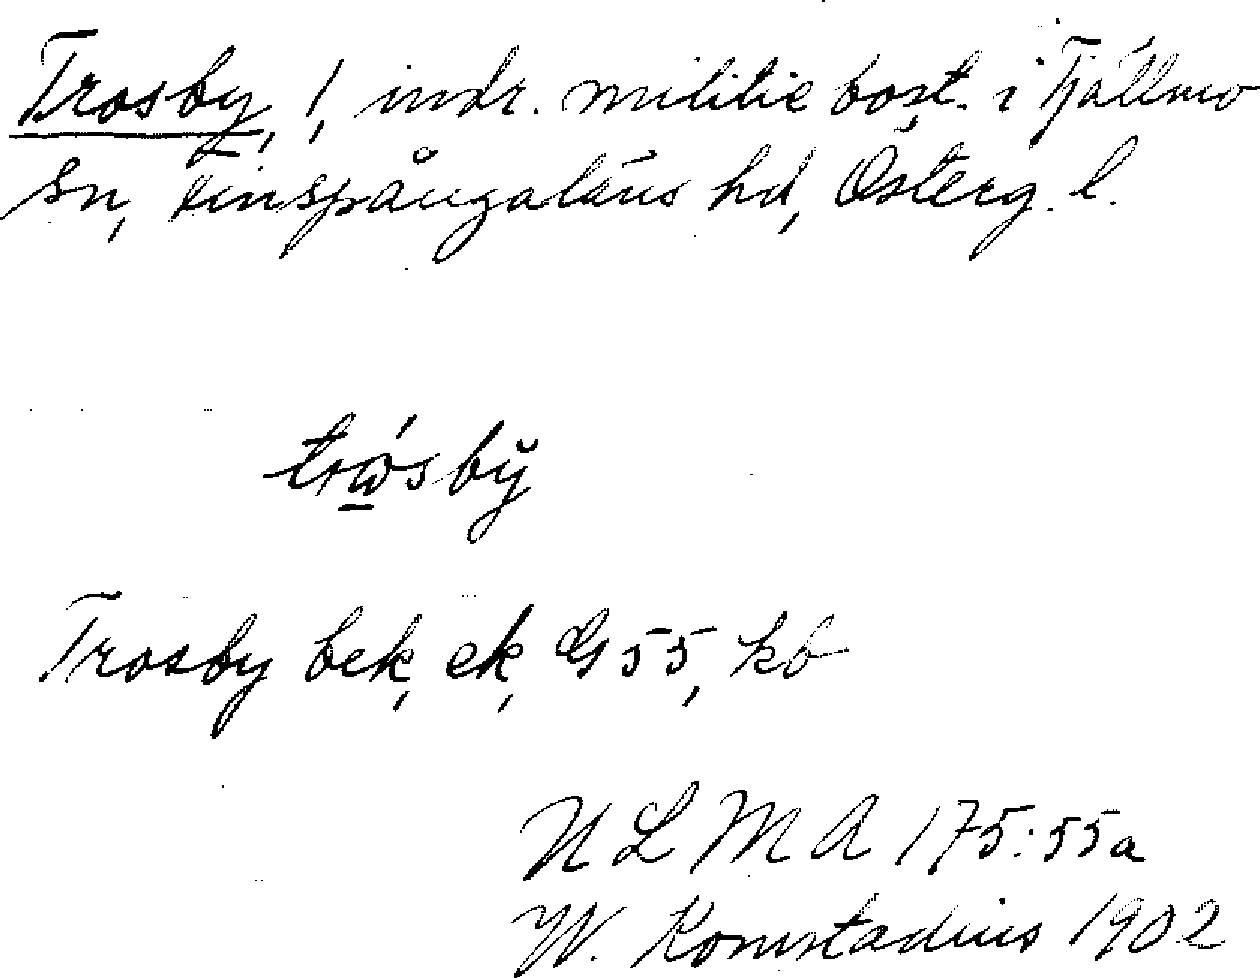 Trosby, 1, indr. militie bost. i Tjällmo
sn, Finspångaläns hd, Österg. l.
trώsby̆
Trosby bek, ek, G 55, kb
U L M A 175:55a
W. Komstadius 1902